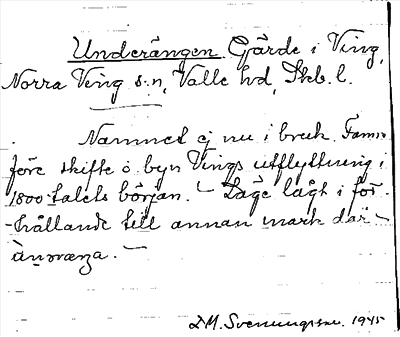 Underängen. Gärde i Ving,
Norra Ving s:n, Valle hd, Skb. l.
Namnet ej nu i bruk. Fanns
före skifte o. byn Vings utflyttning i
1800-talets början. — Låge lågt i för-
-hållande till annan mark där-
D.M. Svenungsson. 1945